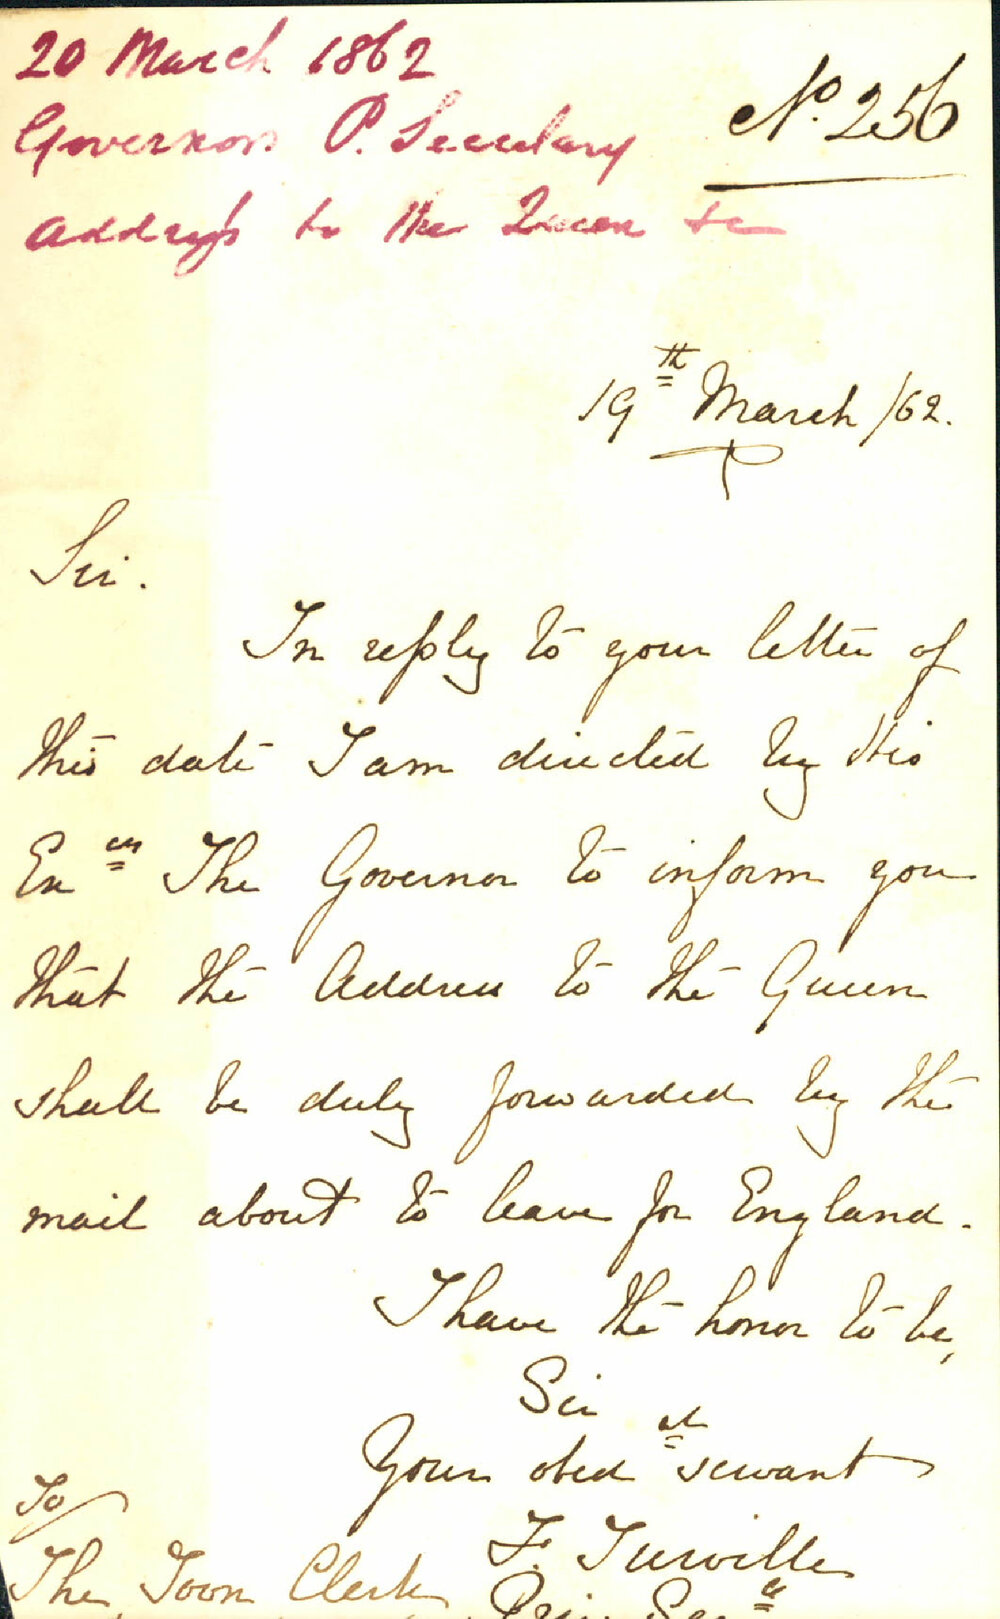 20 March 1862
Governors P. Secretary
Address to the Queen &c
No. 256
19th March /62.
Sir.
In reply to your letter of
this date I am directed by His
Excy The Governor to inform you
that the Address to the Queen
shall be duly forwarded by the
mail about to leave for England.
I have the honor to be,
Sir
Your obedt servant
F. Turville
Priv Secy
To
The Town Clerk